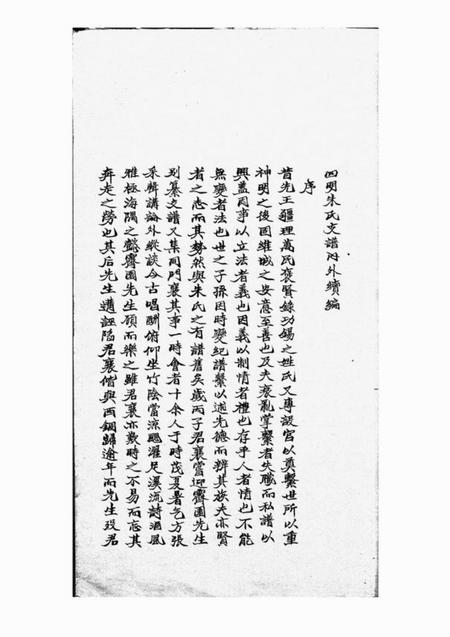 四明朱氏支譜內外續編
序
昔先王疆理萬民褒賢錄功錫之姓氏又專設官以奠繫世所以重
神明之後固維城之安意至善也及夫衰亂掌繫者失職而私譜以
興蓋因事以立法者義也因義以制情者禮也存乎人者情也不能
無變者法也世之子孫因時變紀譜繫以述先德而辨其族夫亦賢
者之志而其勢然與朱氏之有譜舊矣歲丙子君襄當迎霽園先生
別纂支譜又集同門襄其事一時會者十余人于時茂夏暑氣方張
采輯講論外縱談今古唱酬俯仰坐竹陰當涼颸濯足溪流詩酒風
雅極海隅之懿霽園先生顧而樂之雖君襄亦歎時之不易而忘其
奔走之勞也其后先生遘誣陷君襄偕與西銅歸逾年而先生歿君